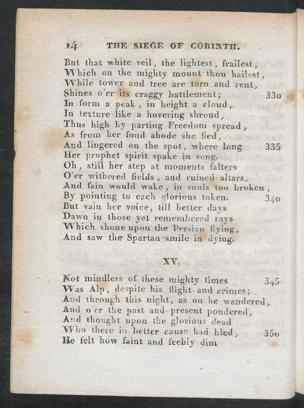 14 THE SIEGE OF CORINTH.
But that white veil, the lightest, frailest,
Which on the mighty mount thou hailest,
While tower and tree are torn and rent,
Shines o'er its craggy battlement; 330
In form a peak, in height a cloud,
In texture like a hovering shroud,
Thus high by parting Freedom spread,
As from her fond abode she fled,
And lingered on the spot, where long 335
Her prophet spirit spake in song.
Oh, still her step at moments falters
O'er withered fields, and ruined altars,
And fain would wake, in souls too broken,
By pointing to each glorious token. 340
But vain her voice, till better days
Dawn in those yet remembered rays
Which shone upon the Persian flying,
And saw the Spartan smile in dying.
XV.
Not mindless of these mighty times 345
Was Alp, despite his flight and crimes;
And through this night, as on he wandered,
And o'er the past and present pondered,
And thought upon the glorious dead
Who there in better cause had bled, 350
He felt how faint and feebly dim